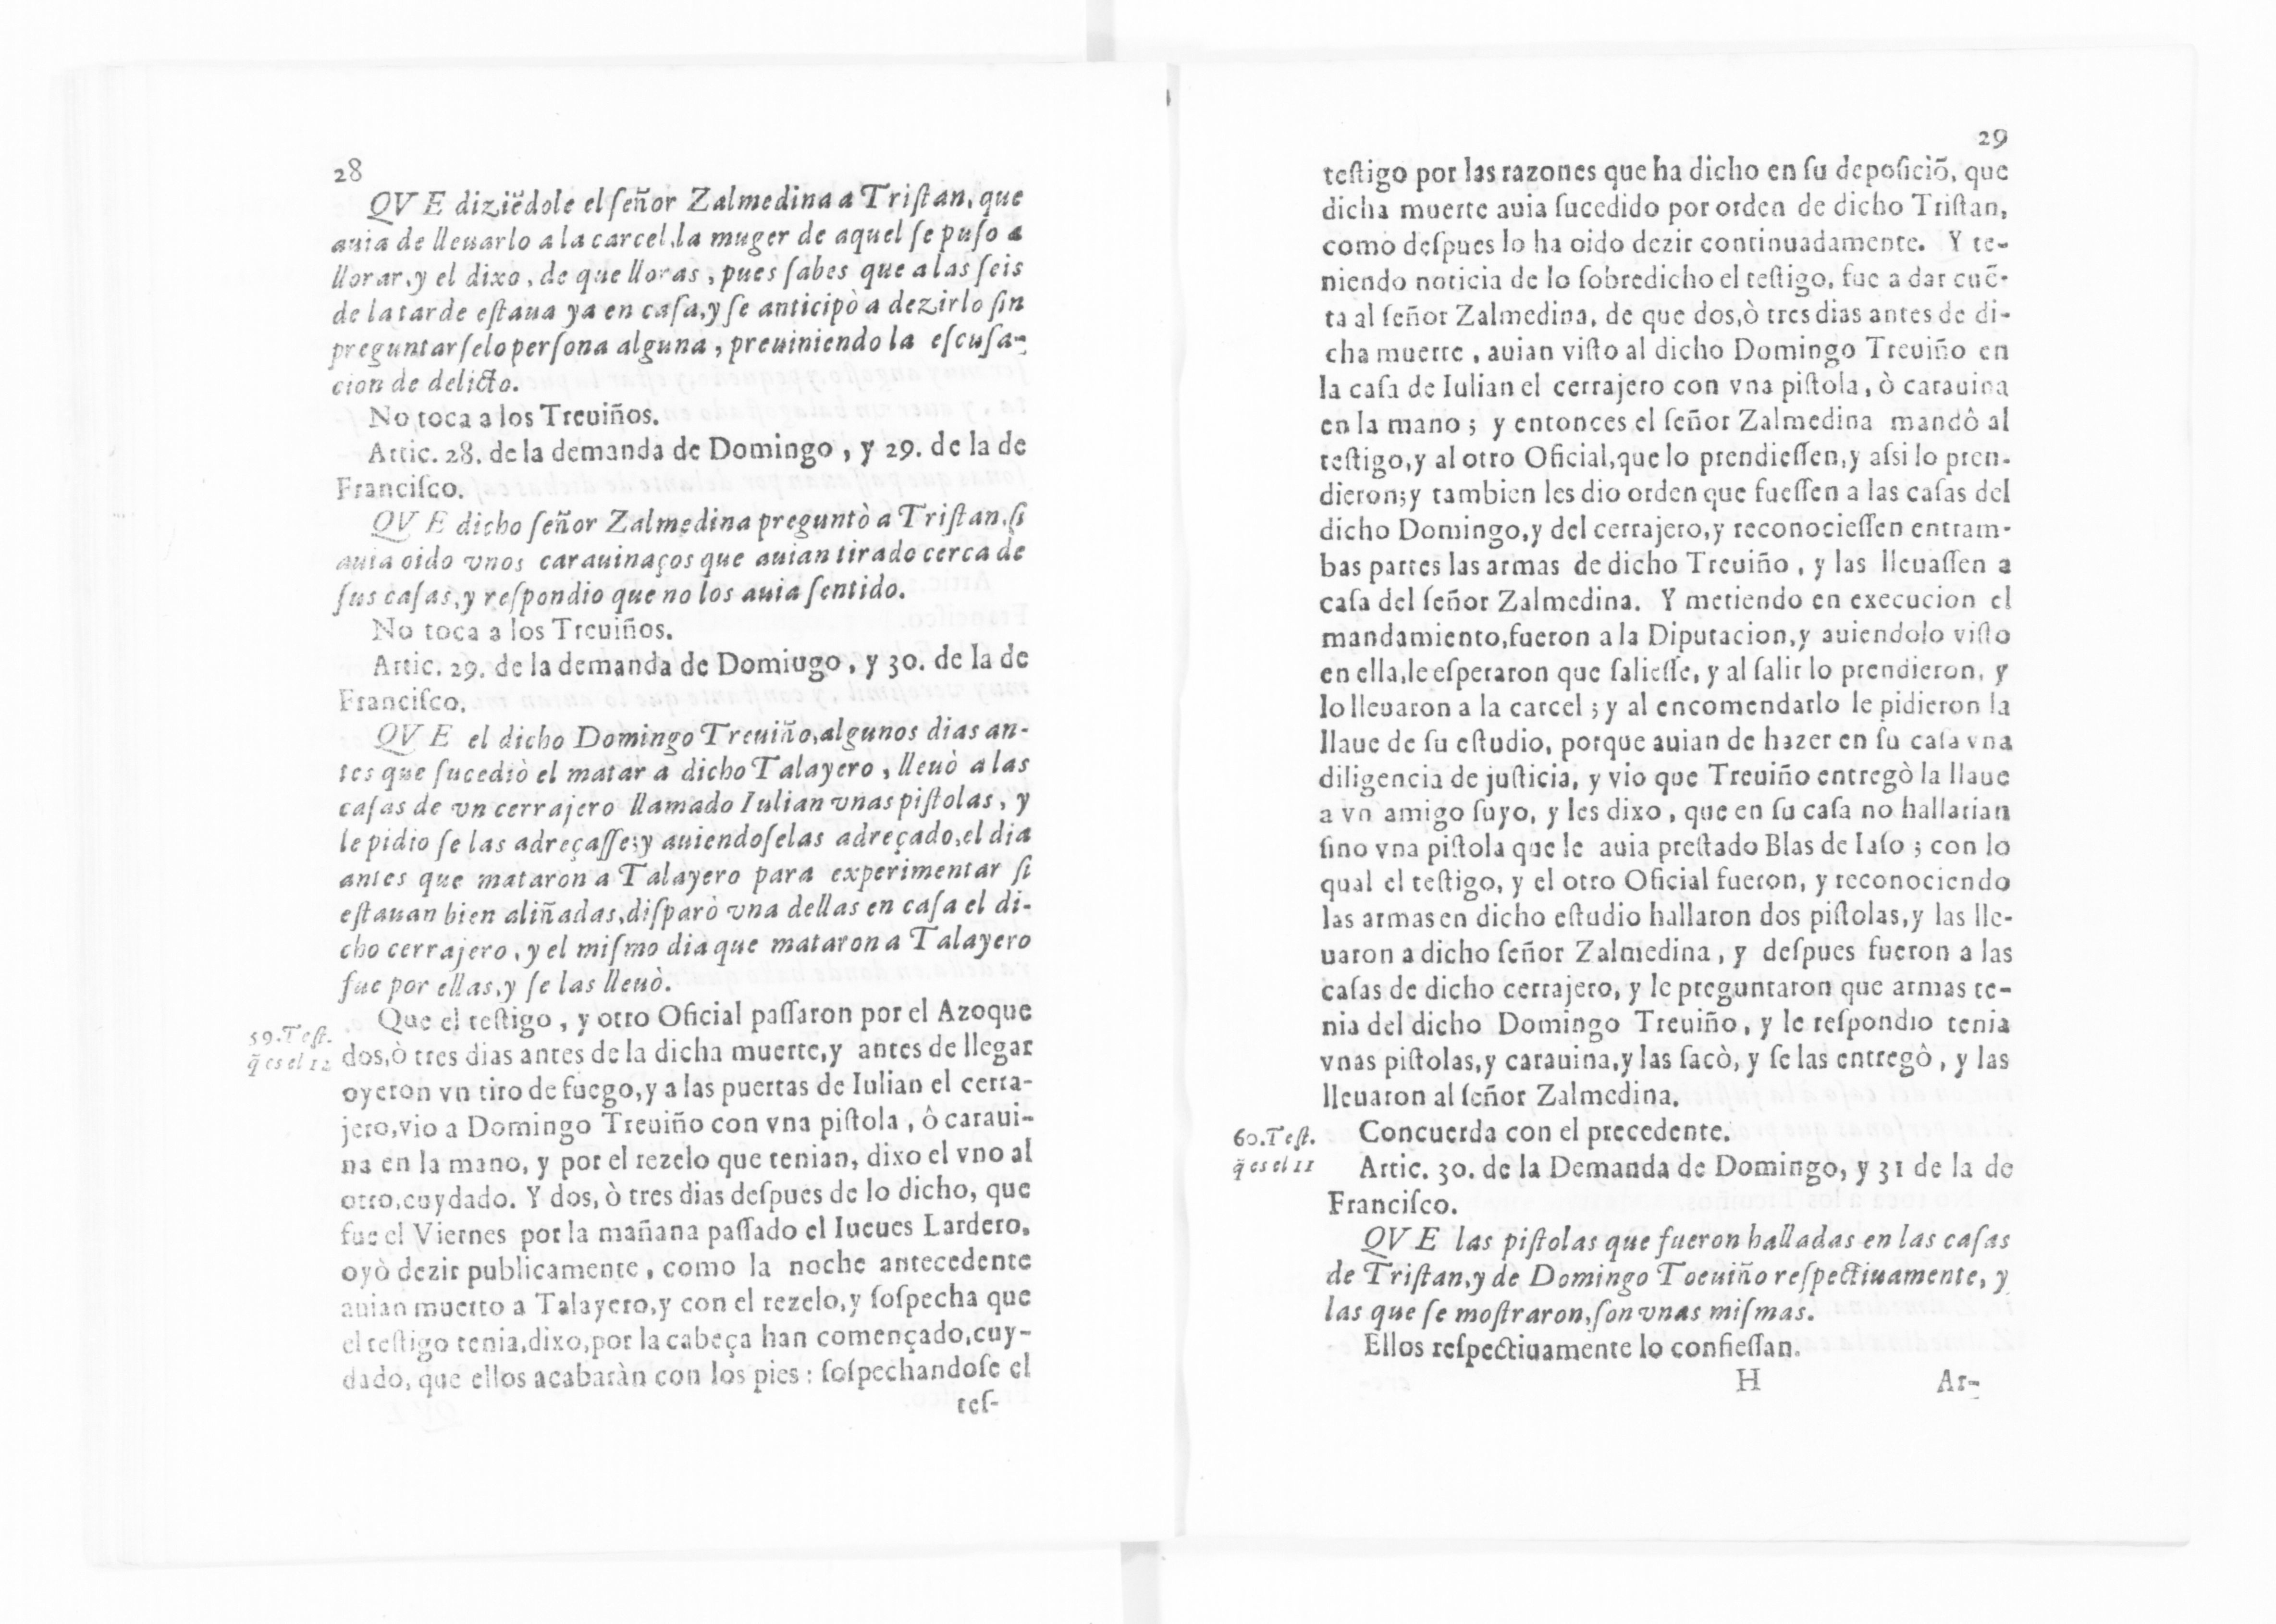 28
QVE diziẽdole el ſeñor Zalmedina a Triſtan, que
auia de lleuarlo a la carcel, la muger de aquel ſe puſo a
llorar, y el dixo, de que lloras, pues ſabes que a las ſeis
de la tarde eſtaua ya en caſa, y ſe anticipò a dezirlo ſin
preguntarſelo perſona alguna, preuiniendo la eſcuſa-
cion de delicto.
No toca a los Treuiños.
Artic. 28. de la demanda de Domingo, y 29. de la de
Franciſco.
QVE dicho ſeñor Zalmedina preguntò a Triſtan, ſi
auia oido vnos carauinaços que auian tirado cerca de
ſus caſas, y reſpondio que no los auia ſentido.
No toca a los Treuiños.
Artic. 29. de la demanda de Domiugo, y 30. de la de
Franciſco.
QVE el dicho Domingo Treuiño, algunos dias an-
tes que ſucediò el matar a dicho Talayero, lleuò a las
caſas de vn cerrajero llamado Iulian vnas piſtolas, y
le pidio ſe las adreçaſſe; y auiendoſelas adreçado, el dia
antes que mataron a Talayero para experimentar ſi
eſtauan bien aliñadas, diſparò vna dellas en caſa el di-
cho cerrajero, y el miſmo dia que mataron a Talayero
fue por ellas, y ſe las lleuò.
59. Teſt.
q̃ es el 12
Que el teſtigo, y otro Oficial paſſaron por el Azoque
dos, ò tres dias antes de la dicha muerte, y antes de llegar
oyeron vn tiro de fuego, y a las puertas de Iulian el cerra-
jero, vio a Domingo Treuiño con vna piſtola, ô caraui-
na en la mano, y por el rezelo que tenian, dixo el vno al
otro, cuydado. Y dos, ò tres dias deſpues de lo dicho, que
fue el Viernes por la mañana paſſado el Iueues Lardero,
oyò dezir publicamente, como la noche antecedente
auian muerto a Talayero, y con el rezelo, y ſoſpecha que
el teſtigo tenia, dixo, por la cabeça han començado, cuy-
dado, que ellos acabaràn con los pies: ſoſpechandoſe el
teſ-
29
teſtigo por las razones que ha dicho en ſu depoſiciõ, que
dicha muerte auia ſucedido por orden de dicho Triſtan,
como deſpues lo ha oido dezir continuadamente. Y te-
niendo noticia de lo ſobredicho el teſtigo, fue a dar cuẽ-
ta al ſeñor Zalmedina, de que dos, ò tres dias antes de di-
cha muerte, auian viſto al dicho Domingo Treuiño en
la caſa de Iulian el cerrajero con vna piſtola, ò carauina
en la mano; y entonces el ſeñor Zalmedina mandô al
teſtigo, y al otro Oficial, que lo prendieſſen, y aſsi lo pren-
dieron; y tambien les dio orden que fueſſen a las caſas del
dicho Domingo, y del cerrajero, y reconocieſſen entram-
bas partes las armas de dicho Treuiño, y las lleuaſſen a
caſa del ſeñor Zalmedina. Y metiendo en execucion el
mandamiento, fueron a la Diputacion, y auiendolo viſto
en ella, le eſperaron que ſalieſſe, y al ſalir lo prendieron, y
lo lleuaron a la carcel; y al encomendarlo le pidieron la
llaue de ſu eſtudio, porque auian de hazer en ſu caſa vna
diligencia de juſticia, y vio que Treuiño entregò la llaue
a vn amigo ſuyo, y les dixo, que en ſu caſa no hallarian
ſino vna piſtola que le auia preſtado Blas de Iaſo; con lo
qual el teſtigo, y el otro Oficial fueron, y reconociendo
las armas en dicho eſtudio hallaron dos piſtolas, y las lle-
uaron a dicho ſeñor Zalmedina, y deſpues fueron a las
caſas de dicho cerrajero, y le preguntaron que armas te-
nia del dicho Domingo Treuiño, y le reſpondio tenia
vnas piſtolas, y carauina, y las ſacò, y ſe las entregô, y las
lleuaron al ſeñor Zalmedina.
60. Teſt.
q̃ es el 11
Concuerda con el precedente.
Artic. 30. de la Demanda de Domingo, y 31 de la de
Franciſco.
QVE las piſtolas que fueron halladas en las caſas
de Triſtan, y de Domingo Toeuiño reſpectiuamente, y
las que ſe moſtraron, ſon vnas miſmas.
Ellos reſpectiuamente lo confieſſan.
H Ar-